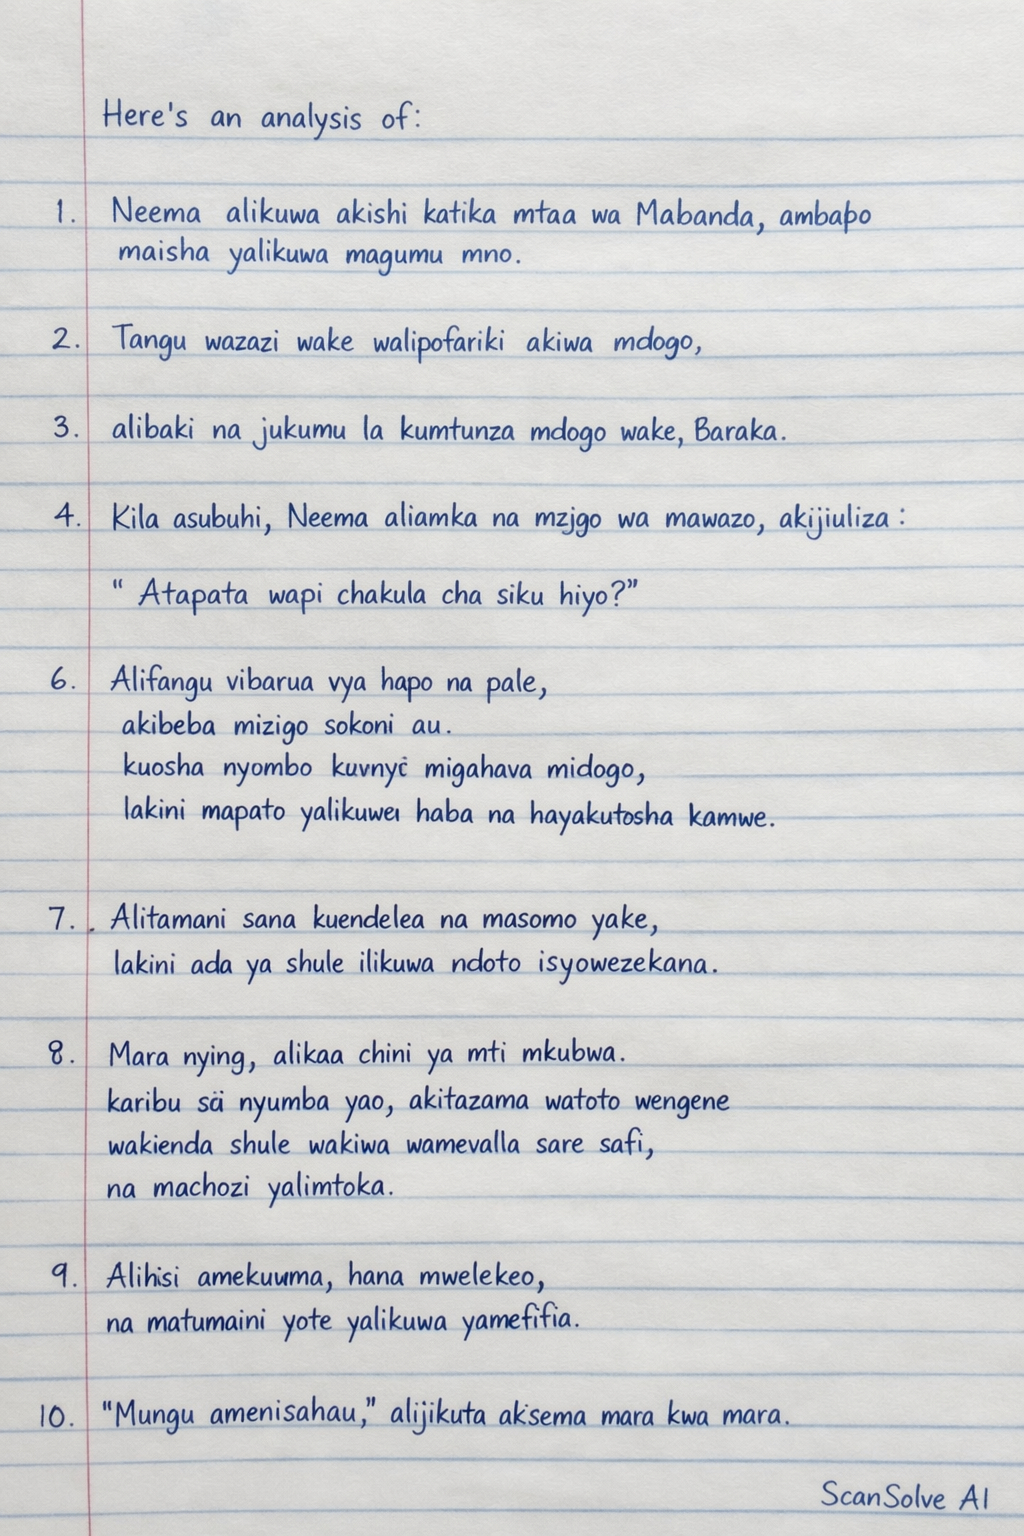 Here's an analysis of:
1. Neema alikuwa akishi katika mtaa wa Mabanda, ambapo
maisha yalikuwa magumu mno.
2. Tangu wazazi wake walipofariki akiwa mdogo,
3. alibaki na jukumu la kumtunza mdogo wake, Baraka.
4. Kila asubuhi, Neema aliamka na mzjgo wa mawazo, akijiuliza :
" Atapata wapi chakula cha siku hiyo?"
6. Alifangu vibarua vya hapo na pale,
akibeba mizigo sokoni au.
kuosha nyombo migahava midogo,
lakini mapato haba na hayakutosha kamwe.
7. . Alitamani sana kuendelea na masomo yake,
lakini ada ya shule ilikuwa ndoto isyowezekana.
8. Mara nying, alikaa chini ya mti mkubwa.
karibu sä nyumba yao, akitazama watoto wengene
wakienda shule wakiwa wamevalla sare safi,
na machozi yalimtoka.
9. Alihisi amekuuma, hana mwelekeo,
na matumaini yote yalikuwa yamefifia.
10. "Mungu amenisahau," alijikuta aksema mara kwa mara.
ScanSolve AI